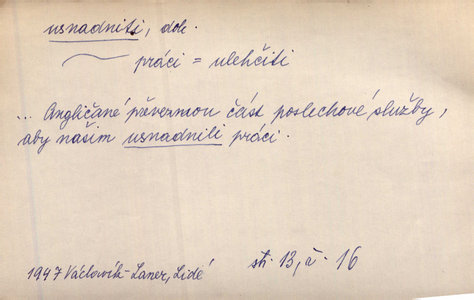 usnadniti, dok.
~ práci = ulehčiti
... Angličané převezmou část poslechové služby,
aby našim usnadnili práci.
1947 Václavík-Laner, Lidé
str. 13, ř. 16